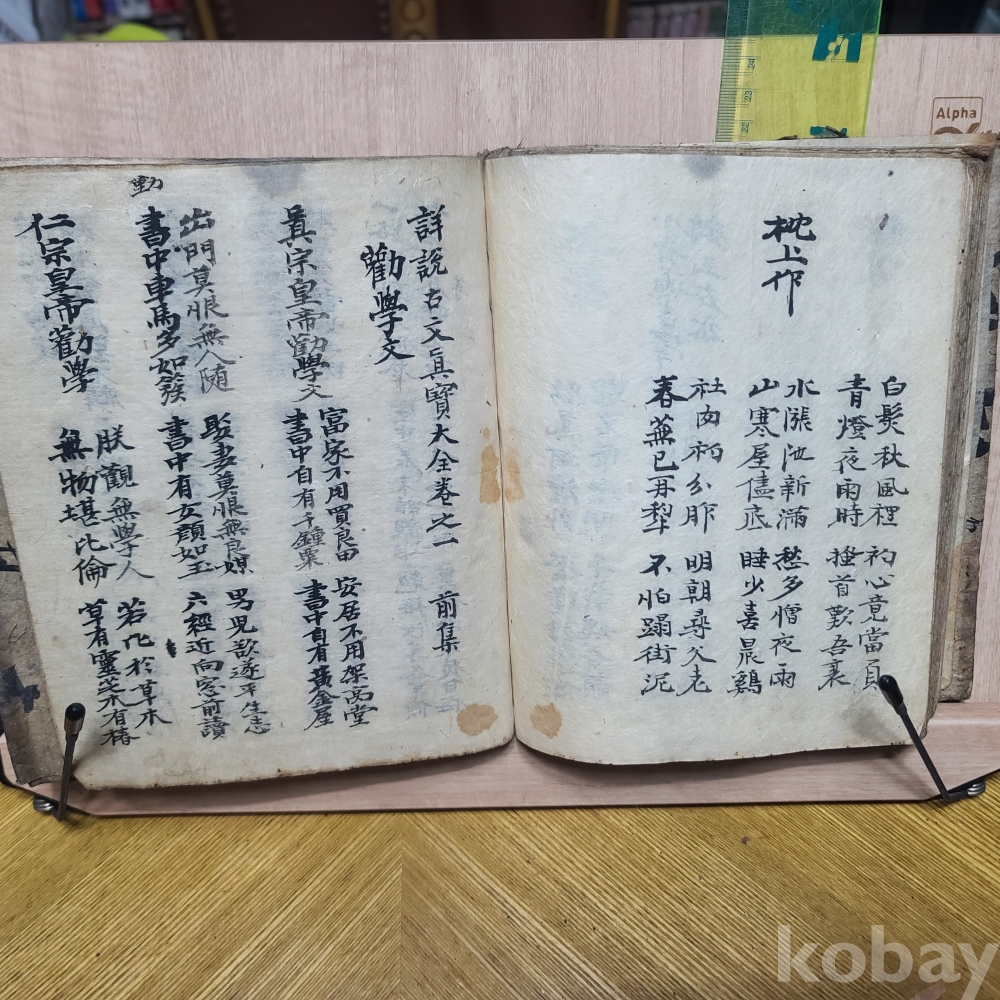 枕上作
白髮秋風裡 初心竟當負
青燈夜雨時 搔首歎吾衰
水漲池新滿 愁多憎夜雨
山寒屋儘底 睡少喜晨鷄
社肉初分胙 明朝尋父老
春蕪已再犁 不怕蹋街泥
詳說古文眞寶大全卷之一 前集
勸學文
眞宗皇帝勸學文
富家不用買良田 安居不用架高堂
書中自有千鍾粟 書中自有黃金屋
出門莫恨無人随 娶妻莫恨無良媒 男児欲遂平生志
書中車馬多如簇 書中有女顔如玉 六經近向窓前讀
仁宗皇帝勸學
朕觀無學人 若比於草木
無物堪比倫 草有靈芝木有椿
24
23
22
Alpha
kobay